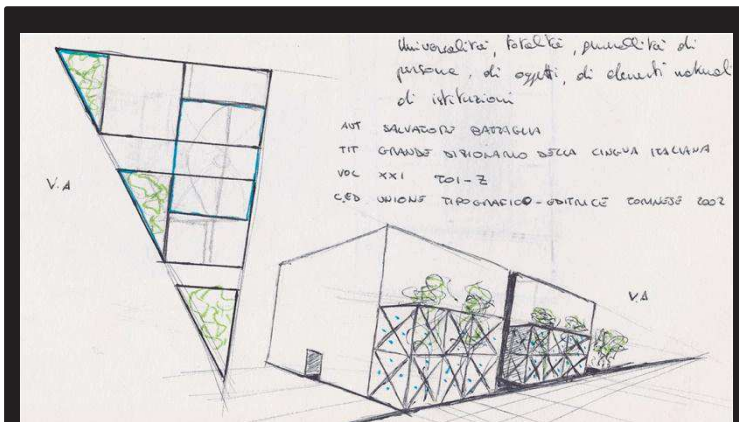 Universalità, totalità, pluralità di
persone, di oggetti, di elementi naturali
di istituzioni
AUT SALVATORE BATTAGLIA
TIT GRANDE DIZIONARIO DELLA LINGUA ITALIANA
VOL XXI TOI-Z
C.ED UNIONE TIPOGRAFICO-EDITRICE TORINESE 2002
V.A
V.A